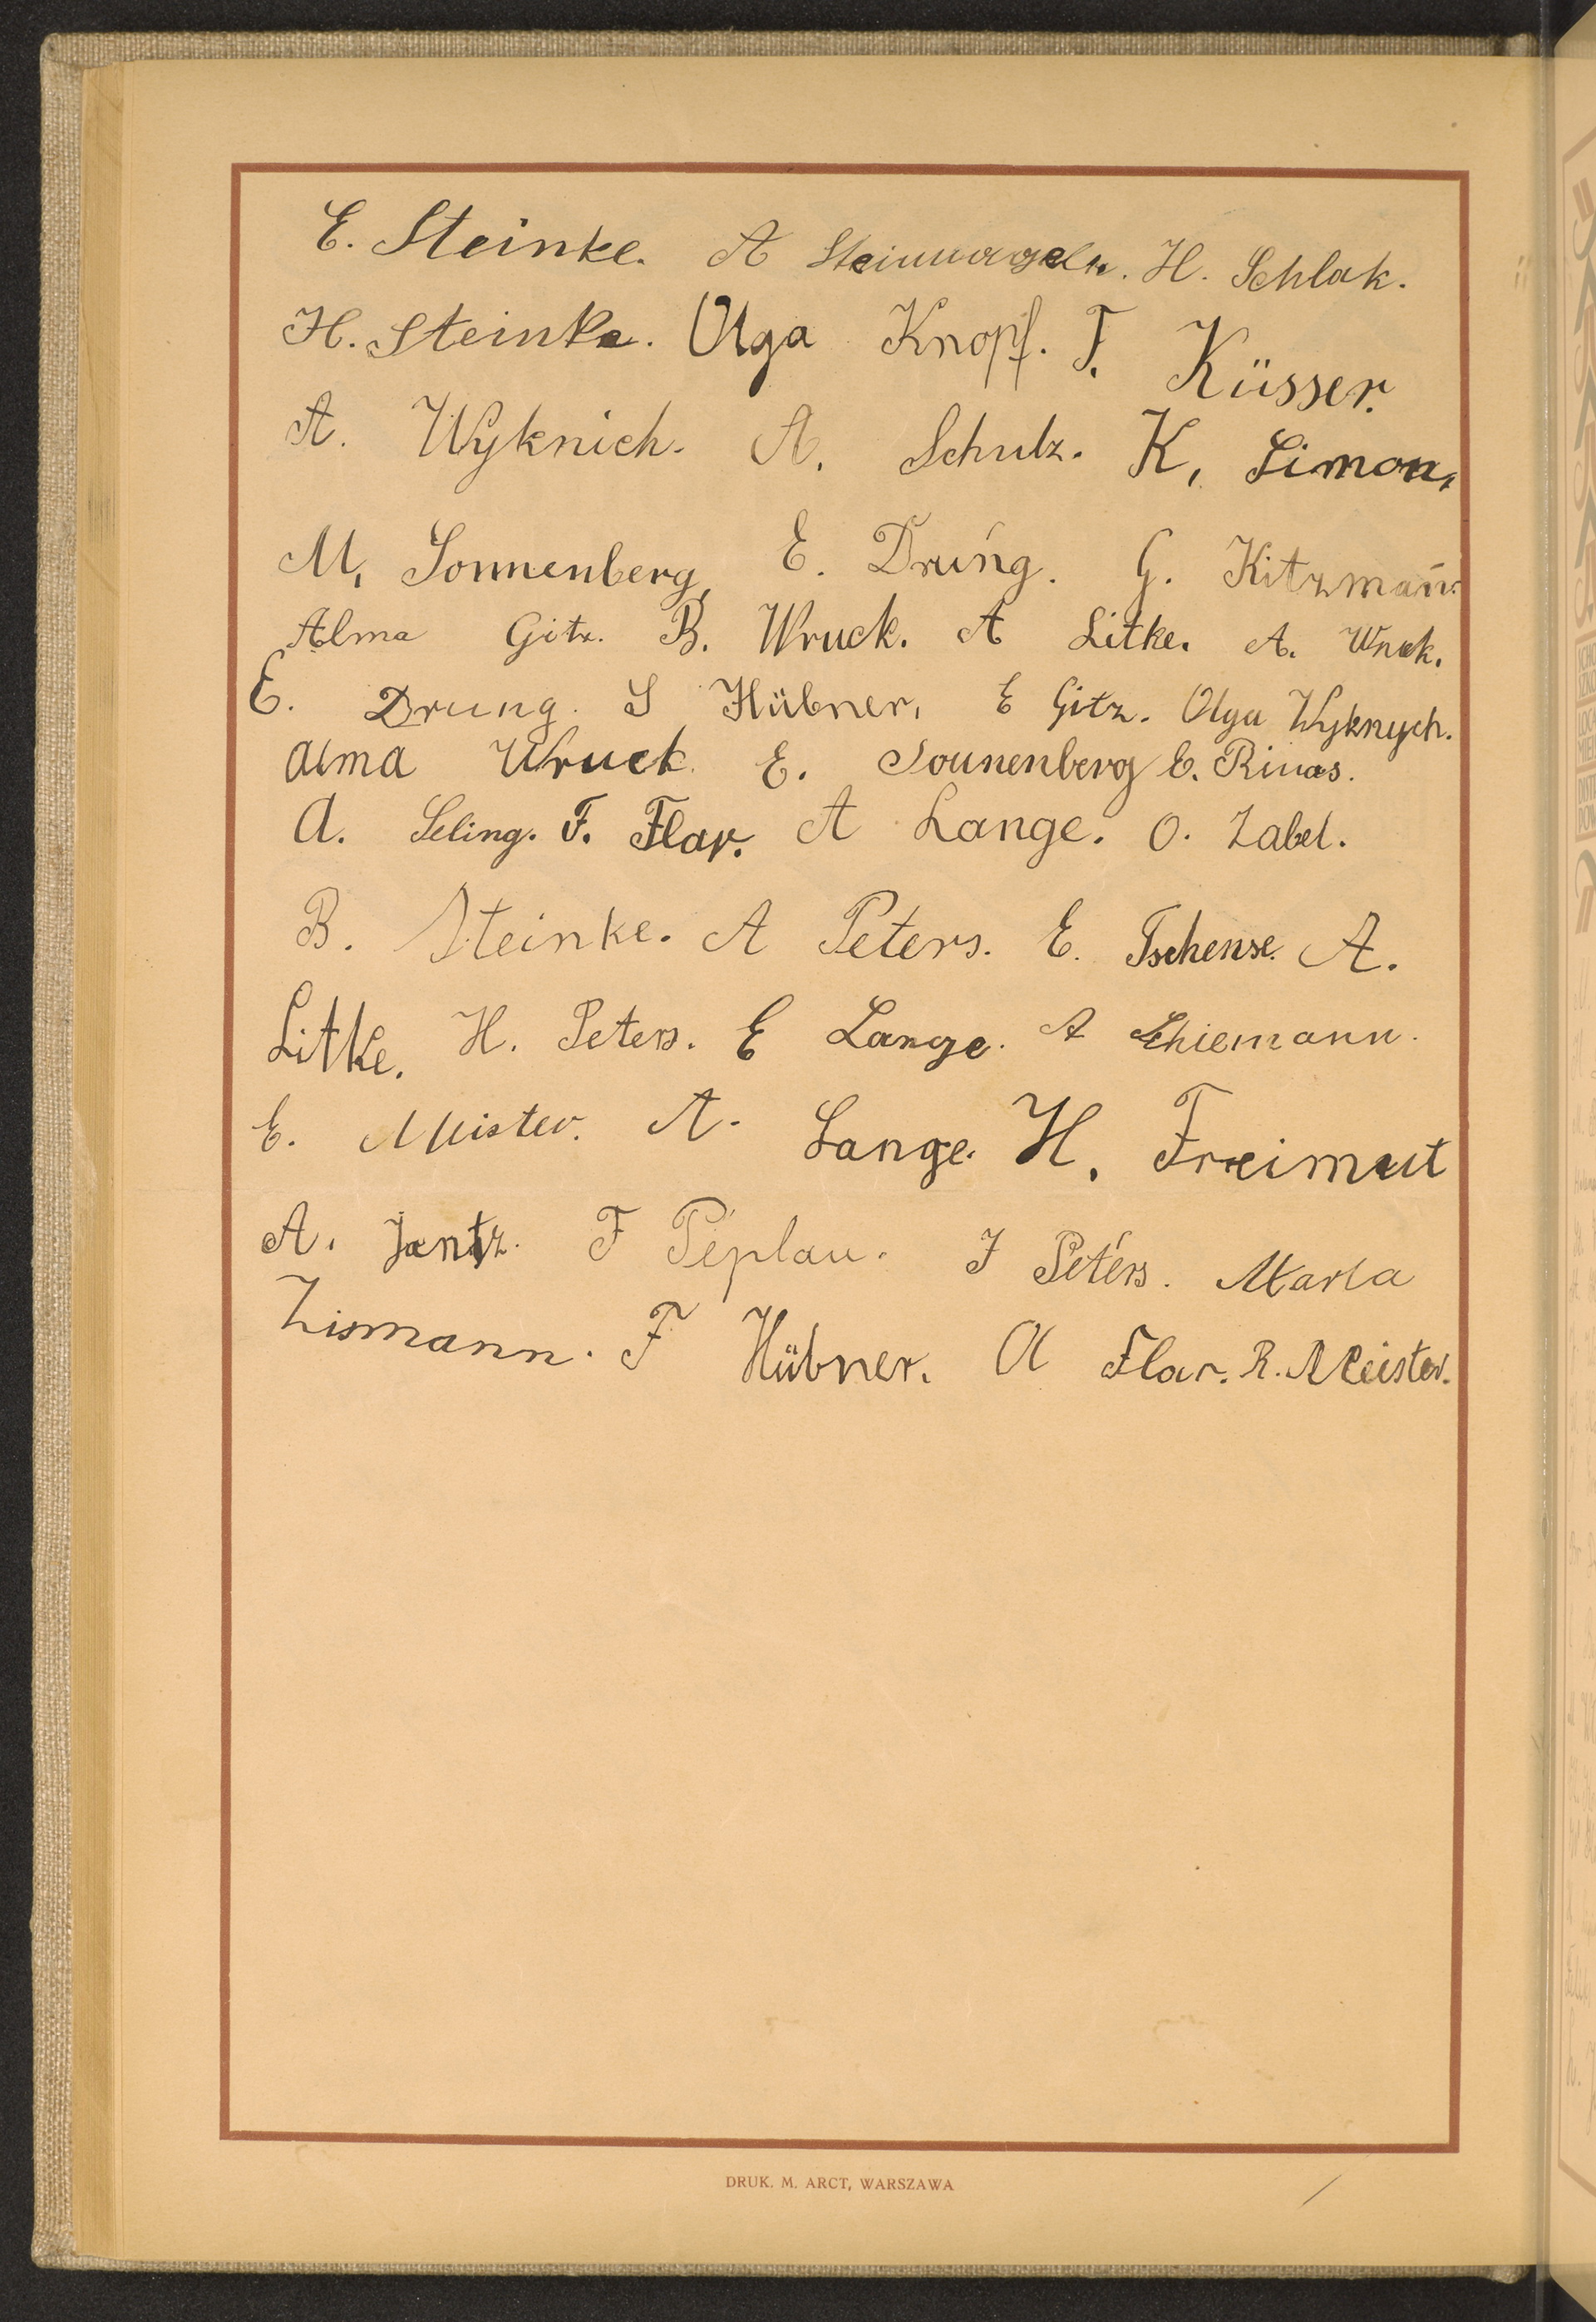 E. Steinke. A Steinwageln. H. Schlak.
H. Steinke. Olga Knopf. T. Küsser.
A. Wyknich. A. Schulz. K, Simon,
M, Sonnenberg, E. Druńg. G. Kitzmań.
Alma Gitz. B. Wruck. A Litke. A. Wruk.
E. Drung. S Hübner, E Gitz. Olga Wyknych.
Alma Wruck. E. Sonnenberg E. Rinas.
A. Seling. F. Flar. A Lange. O. Zabel.
B. Steinke. A Peters. E. Tschense. A.
Litke. H. Peters. E Lange. A Schiemann.
E. Meister. A. Lange. H. Freimut
A. Jantz. F Péplau. J Petérs. Marta
Zismann. F Hübner. A Flar. R. Meister.
DRUK. M. ARCT, WARSZAWA